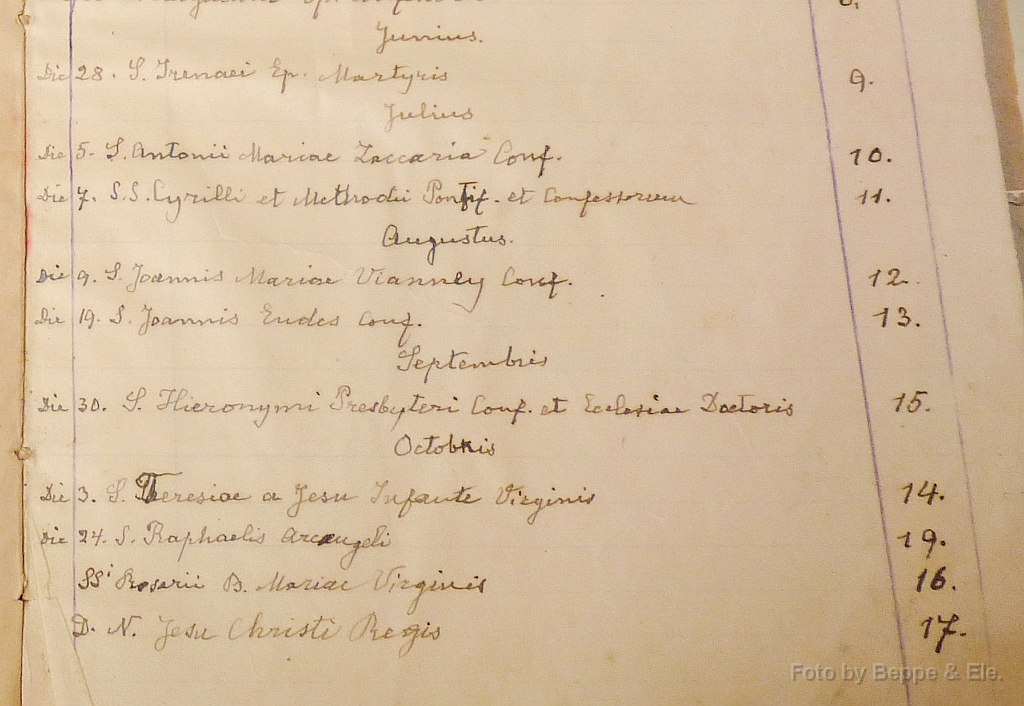 Junius.
Die 28. S. Irenaei Ep. Martyris 9.
Julius
Die 5. S. Antonii Mariae Zaccaria Conf. 10.
Die 7. S.S. Cyrilli et Methodii Pontif. et Confessorum 11.
Augustus.
Die 9. S. Joannis Mariae Vianney Conf. 12.
Die 19. S. Joannis Eudes Conf. 13.
Septembris
Die 30. S. Hieronymi Presbyteri Conf. et Ecclesiae Doctoris 15.
Octobris
Die 3. S. Theresiae a Jesu Infante Virginis 14.
Die 24. S. Raphaelis Arcangeli 19.
SSi Rosarii B. Mariae Virginis 16.
D. N. Jesu Christi Regis 17.
Foto by Beppe & Ele.